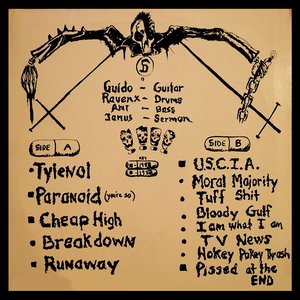 Guido - Guitar
Ravenx - Drums
Ant - Bass
Janus - Sermon
SIDE A
SIDE B
KEY
• Tylenol
■ Paranoid (you're so)
■ Cheap High
• Breakdown
■ Runaway
■ U.S.C.I.A.
• Moral Majority
• Tuff Shit
• Bloody Gulf
• I am what I am
• TV News
• Hokey Pokey Thrash
■ Pissed at the
END